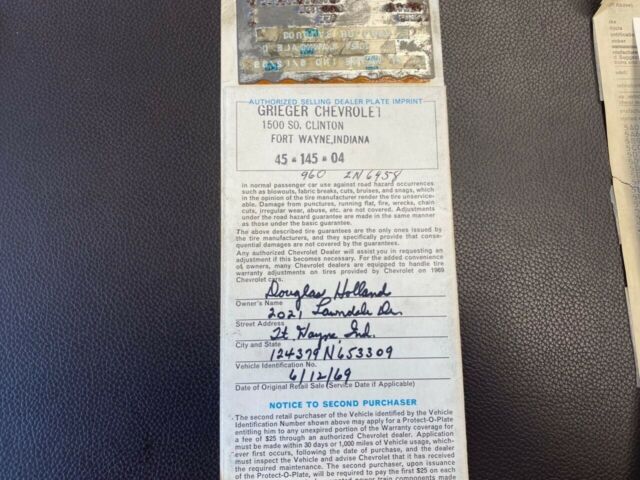 AUTHORIZED SELLING DEALER PLATE IMPRINT
GRIEGER CHEVROLET
1500 SO. CLINTON
FORT WAYNE, INDIANA
45 145 04
960 2N6958
in normal passenger car use against road hazard occurrences
such as blowouts, fabric breaks, cuts, bruises, and snags, which
in the opinion of the tire manufacturer render the tire unservice-
able. Damage from punctures, running flat, fire, wrecks, chain
cuts, irregular wear, abuse, etc. are not covered. Adjustments
under the road hazard guarantee are made in the same manner
as those under the basic guarantee.
The above described tire guarantees are the only ones issued by
the tire manufacturers, and they specifically provide that conse-
quential damages are not covered by the guarantees.
Any authorized Chevrolet Dealer will assist you in requesting an
adjustment if this becomes necessary. For the added convenience
of owners, many Chevrolet dealers are equipped to handle tire
warranty adjustments on tires provided by Chevrolet on 1969
Chevrolet cars.
Douglas Holland
Owner's Name
2021 Lawndale Dr.
Street Address
Ft Wayne, Ind.
City and State
124379N653309
Vehicle Identification No.
6/12/69
Date of Original Retail Sale (Service Date if Applicable)
NOTICE TO SECOND PURCHASER
The second retail purchaser of the Vehicle identified by the Vehicle
Identification Number shown above may apply for a Protect-O-Plate
entitling him to any unexpired portion of the Warranty coverage for
a fee of $25 through an authorized Chevrolet dealer. Application
must be made within 30 days or 1,000 miles of Vehicle usage, which-
ever first occurs, following the date of purchase, and the dealer
must inspect the Vehicle and advise Chevrolet that it has received
the required maintenance. The second purchaser, upon issuance
of the Protect-O-Plate, will be required to pay the first $25 on each
power train components made